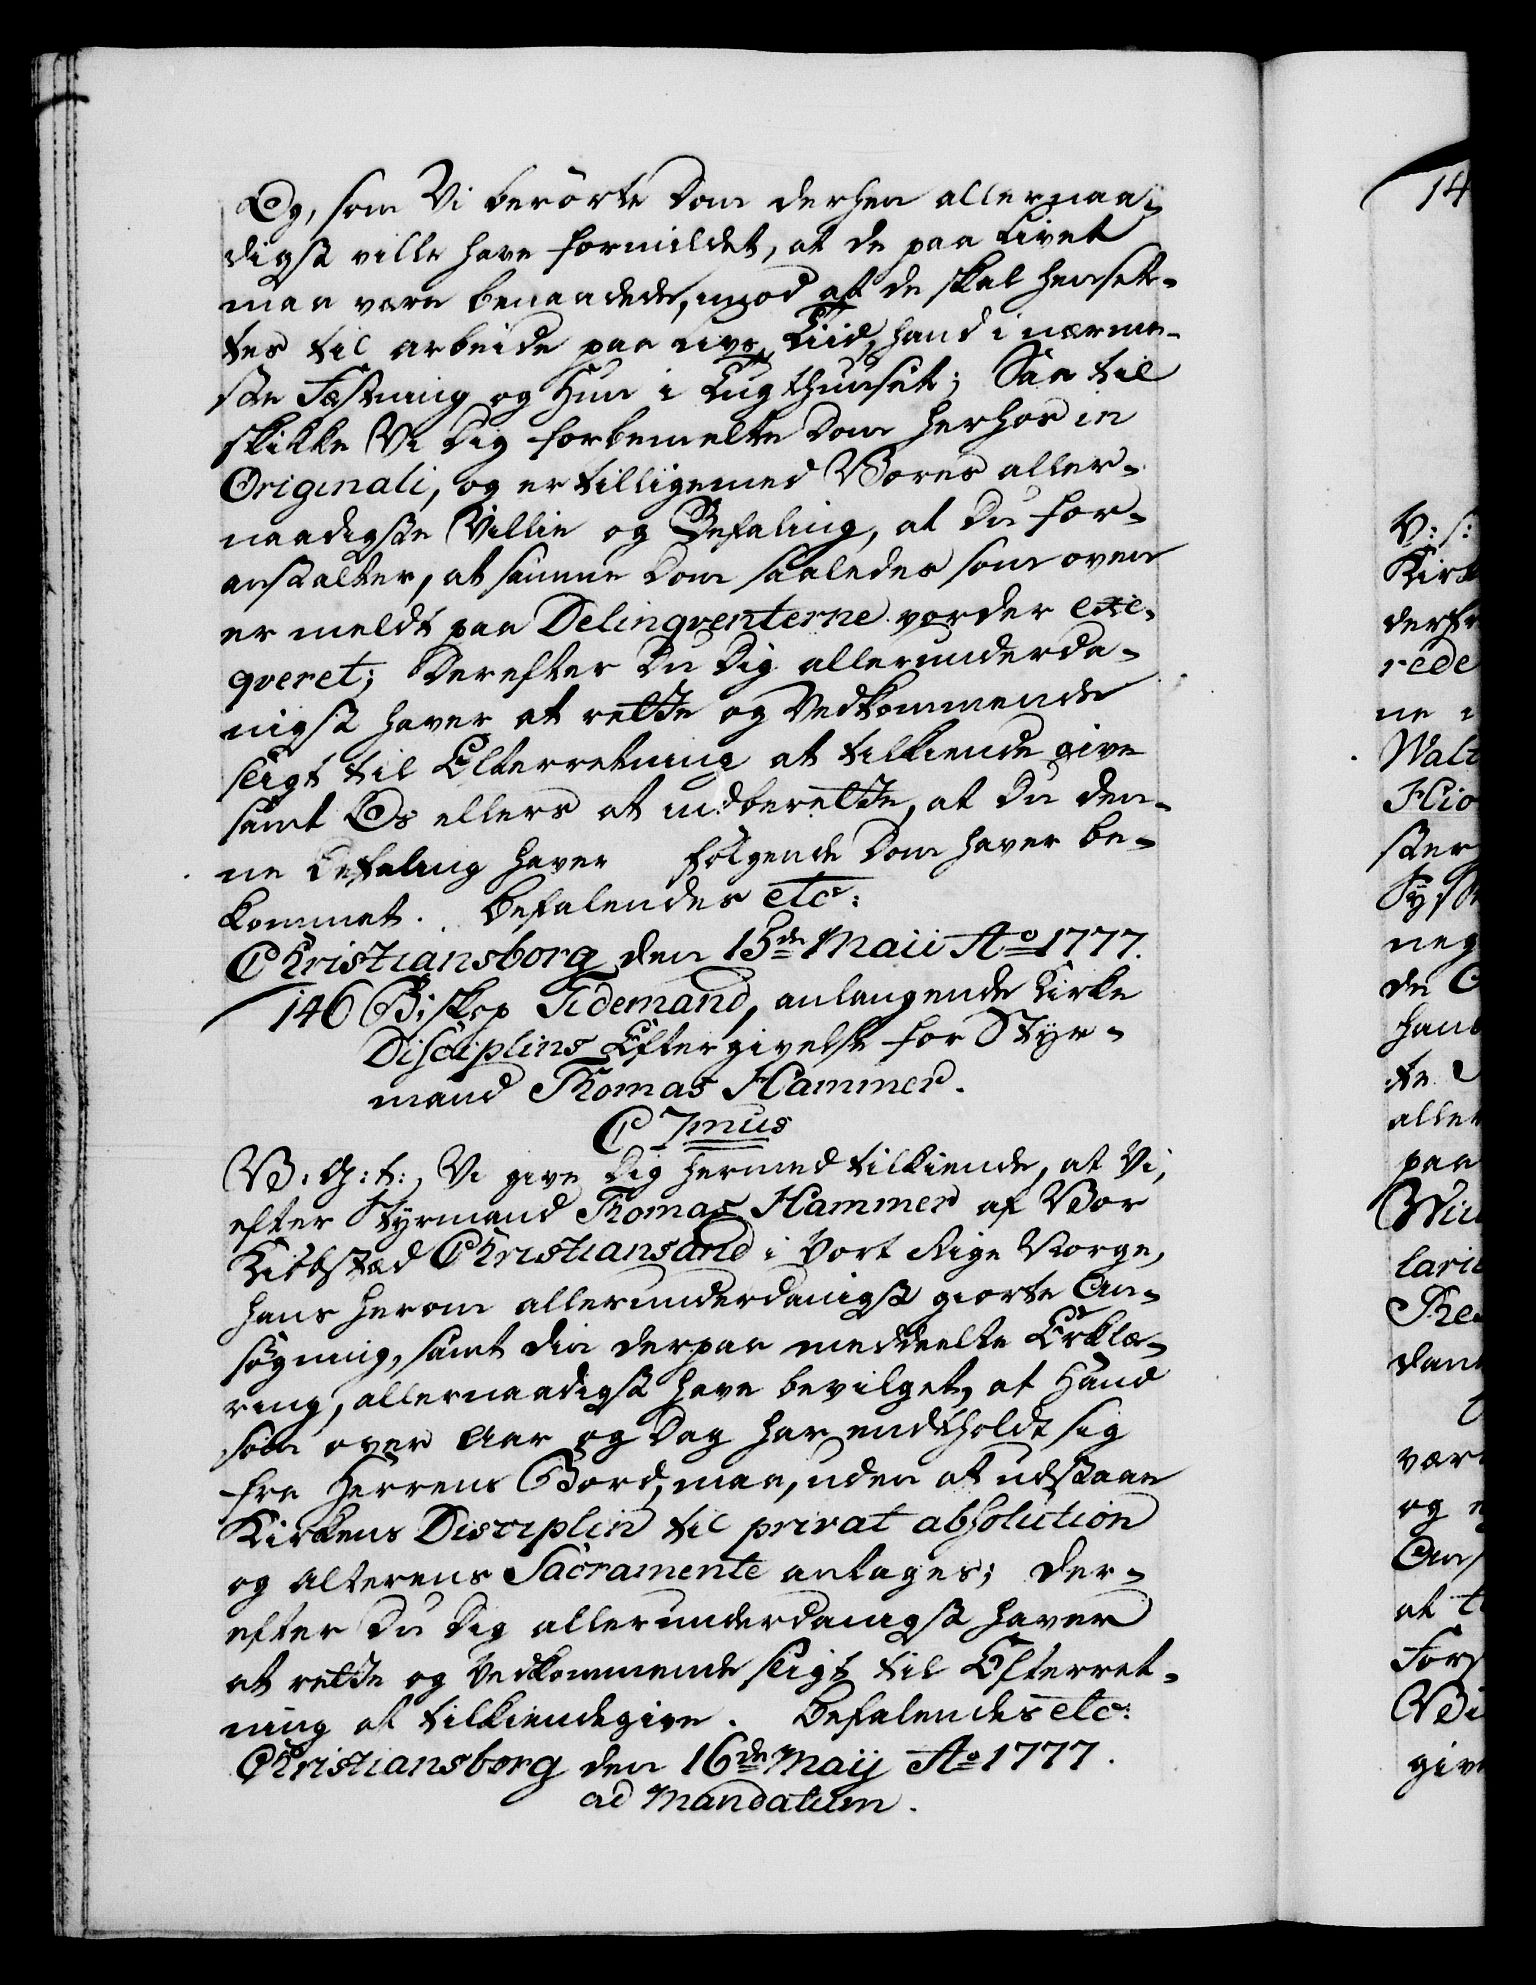 Og, som Vi berörte Dom derhen allernaa-
digst ville have formildet, at de paa Livet
maa være benaadede, mod at de skal hensæt-
tes til arbeide paa Livs Tiid, hand i nærme-
ste Fæstning og Hun i Tugthuuset; Saa til
skikke Vi Dig forbemelte Dom herhos in
Originali, og er tilligemed Vores aller-
naadigste Villie og Befaling, at Du for-
anstalter, at samme Dom saaledes som oven
er meldt paa Delinqventerne vorder exe-
qveret; Derefter Du Dig allerunderda-
nigst haver at rette og Vedkommende
sligt til Efterretning at tilkiende give
samt Os ellers at indberette, at Du den-
ne Befaling haver følgende Dom haver be-
kommet. Befalendes etc:
Christiansborg den 15de Maii Ao 1777.
146 Biskop Tidemand, anlangende Kirke
Disciplins Eftergivelse for Styr-
mand Thomas Hammer.
C 7mus
V: G: t:, Vi give Dig hermed tilkiende, at Vi,
efter Styrmand Thomas Hammer af Vor
Kiøbstæd Christiansand i Vort Rige Norge,
hans herom allerunderdanigst giorte An-
søgning, samt din derpaa meddeelte Erklæ-
ring, allernaadigst have bevilget, at Hand
som over Aar og Dag har endtholdt sig
fra Herrens Bord, maa, uden at udstaae
Kirkens Disciplin til privat absolution
og Alterens Sacramente antages; Der-
efter Du Dig allerunderdanigst haver
at rette og Vedkommende sligt til Efterret-
ning at tilkiendegive. Befalendes etc:
Christiansborg den 16de Maij Ao 1777.
ad Mandatum.